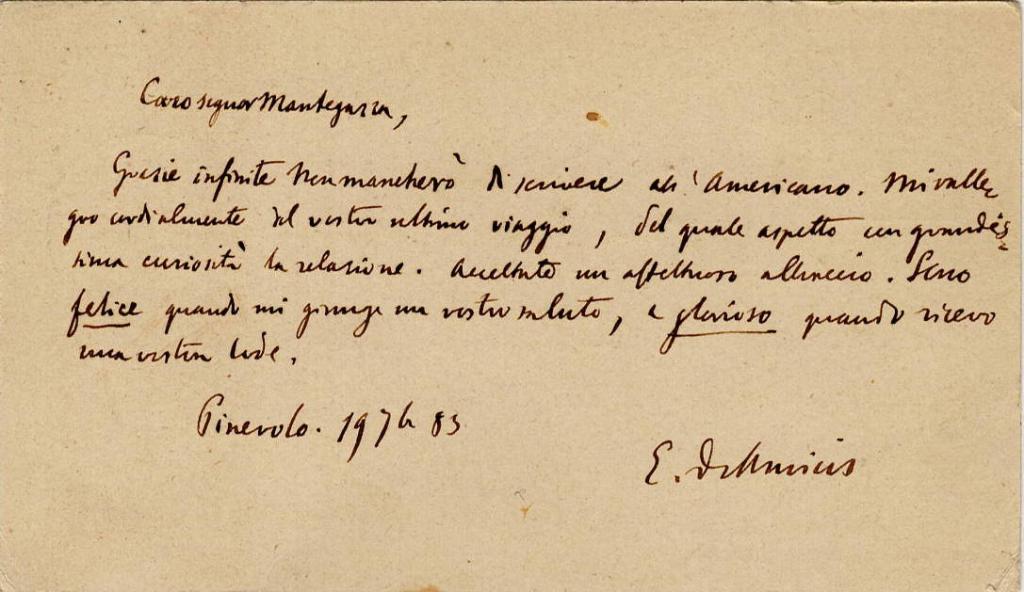 Caro signor Mantegazza,
Grazie infinite. Non mancherò di scrivere all'Americano. Mi ralle-
gro cordialmente del vostro ultimo viaggio, del quale aspetto con grandis-
sima curiosità la relazione. Accettate un affettuoso abbraccio. Sono
felice quando mi giunge un vostro saluto, e glorioso quando ricevo
una vostra lode.
Pinerolo. 19 7b 83
E. De Amicis